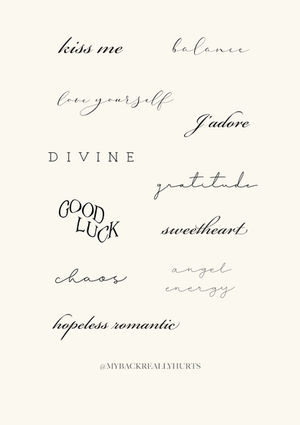 kiss me
balance
love yourself
J'adore
DIVINE
gratitude
GOOD
LUCK
sweetheart
chaos
angel
energy
hopeless romantic
@MYBACKREALLYHURTS